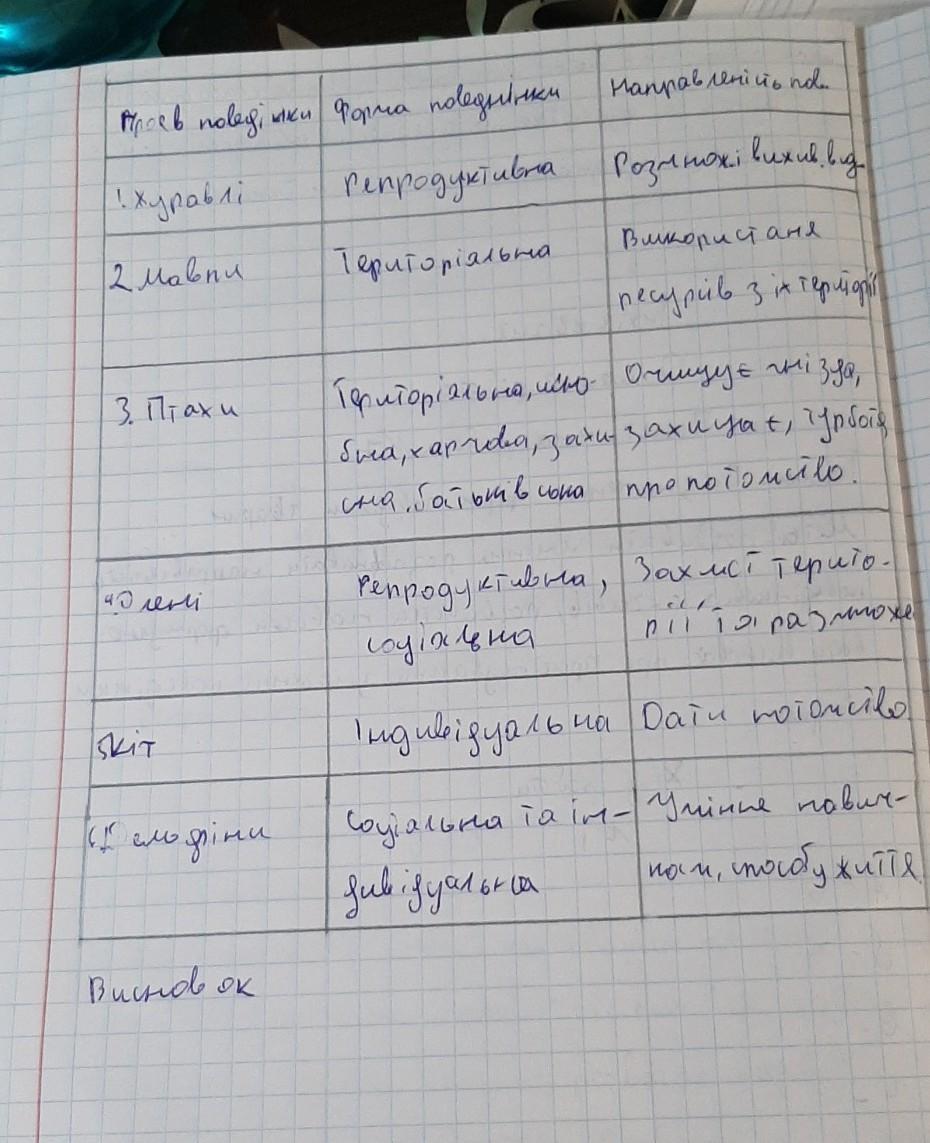 Прояв поведінки
Форма поведнінки
Направленість пов.
1. Журавлі
репродуктивна
Розмнож. і вижив. вид
2 Мавпи
Територіальна
Використаня
ресурсів з їх території
3. Птахи
Територіальна, шлю-
бна, харчова, захи-
сна, батьківська
Очищує гнізда,
захищає, турбота
про потомство.
4. Олені
репродуктивна,
соціальна
Захист терито-
рії та размноже
5 Кіт
Індивідуальна
Дати потомство
Соціальна та ін-
дивідуальна
Уміння навич-
кам, способу життя
Висновок